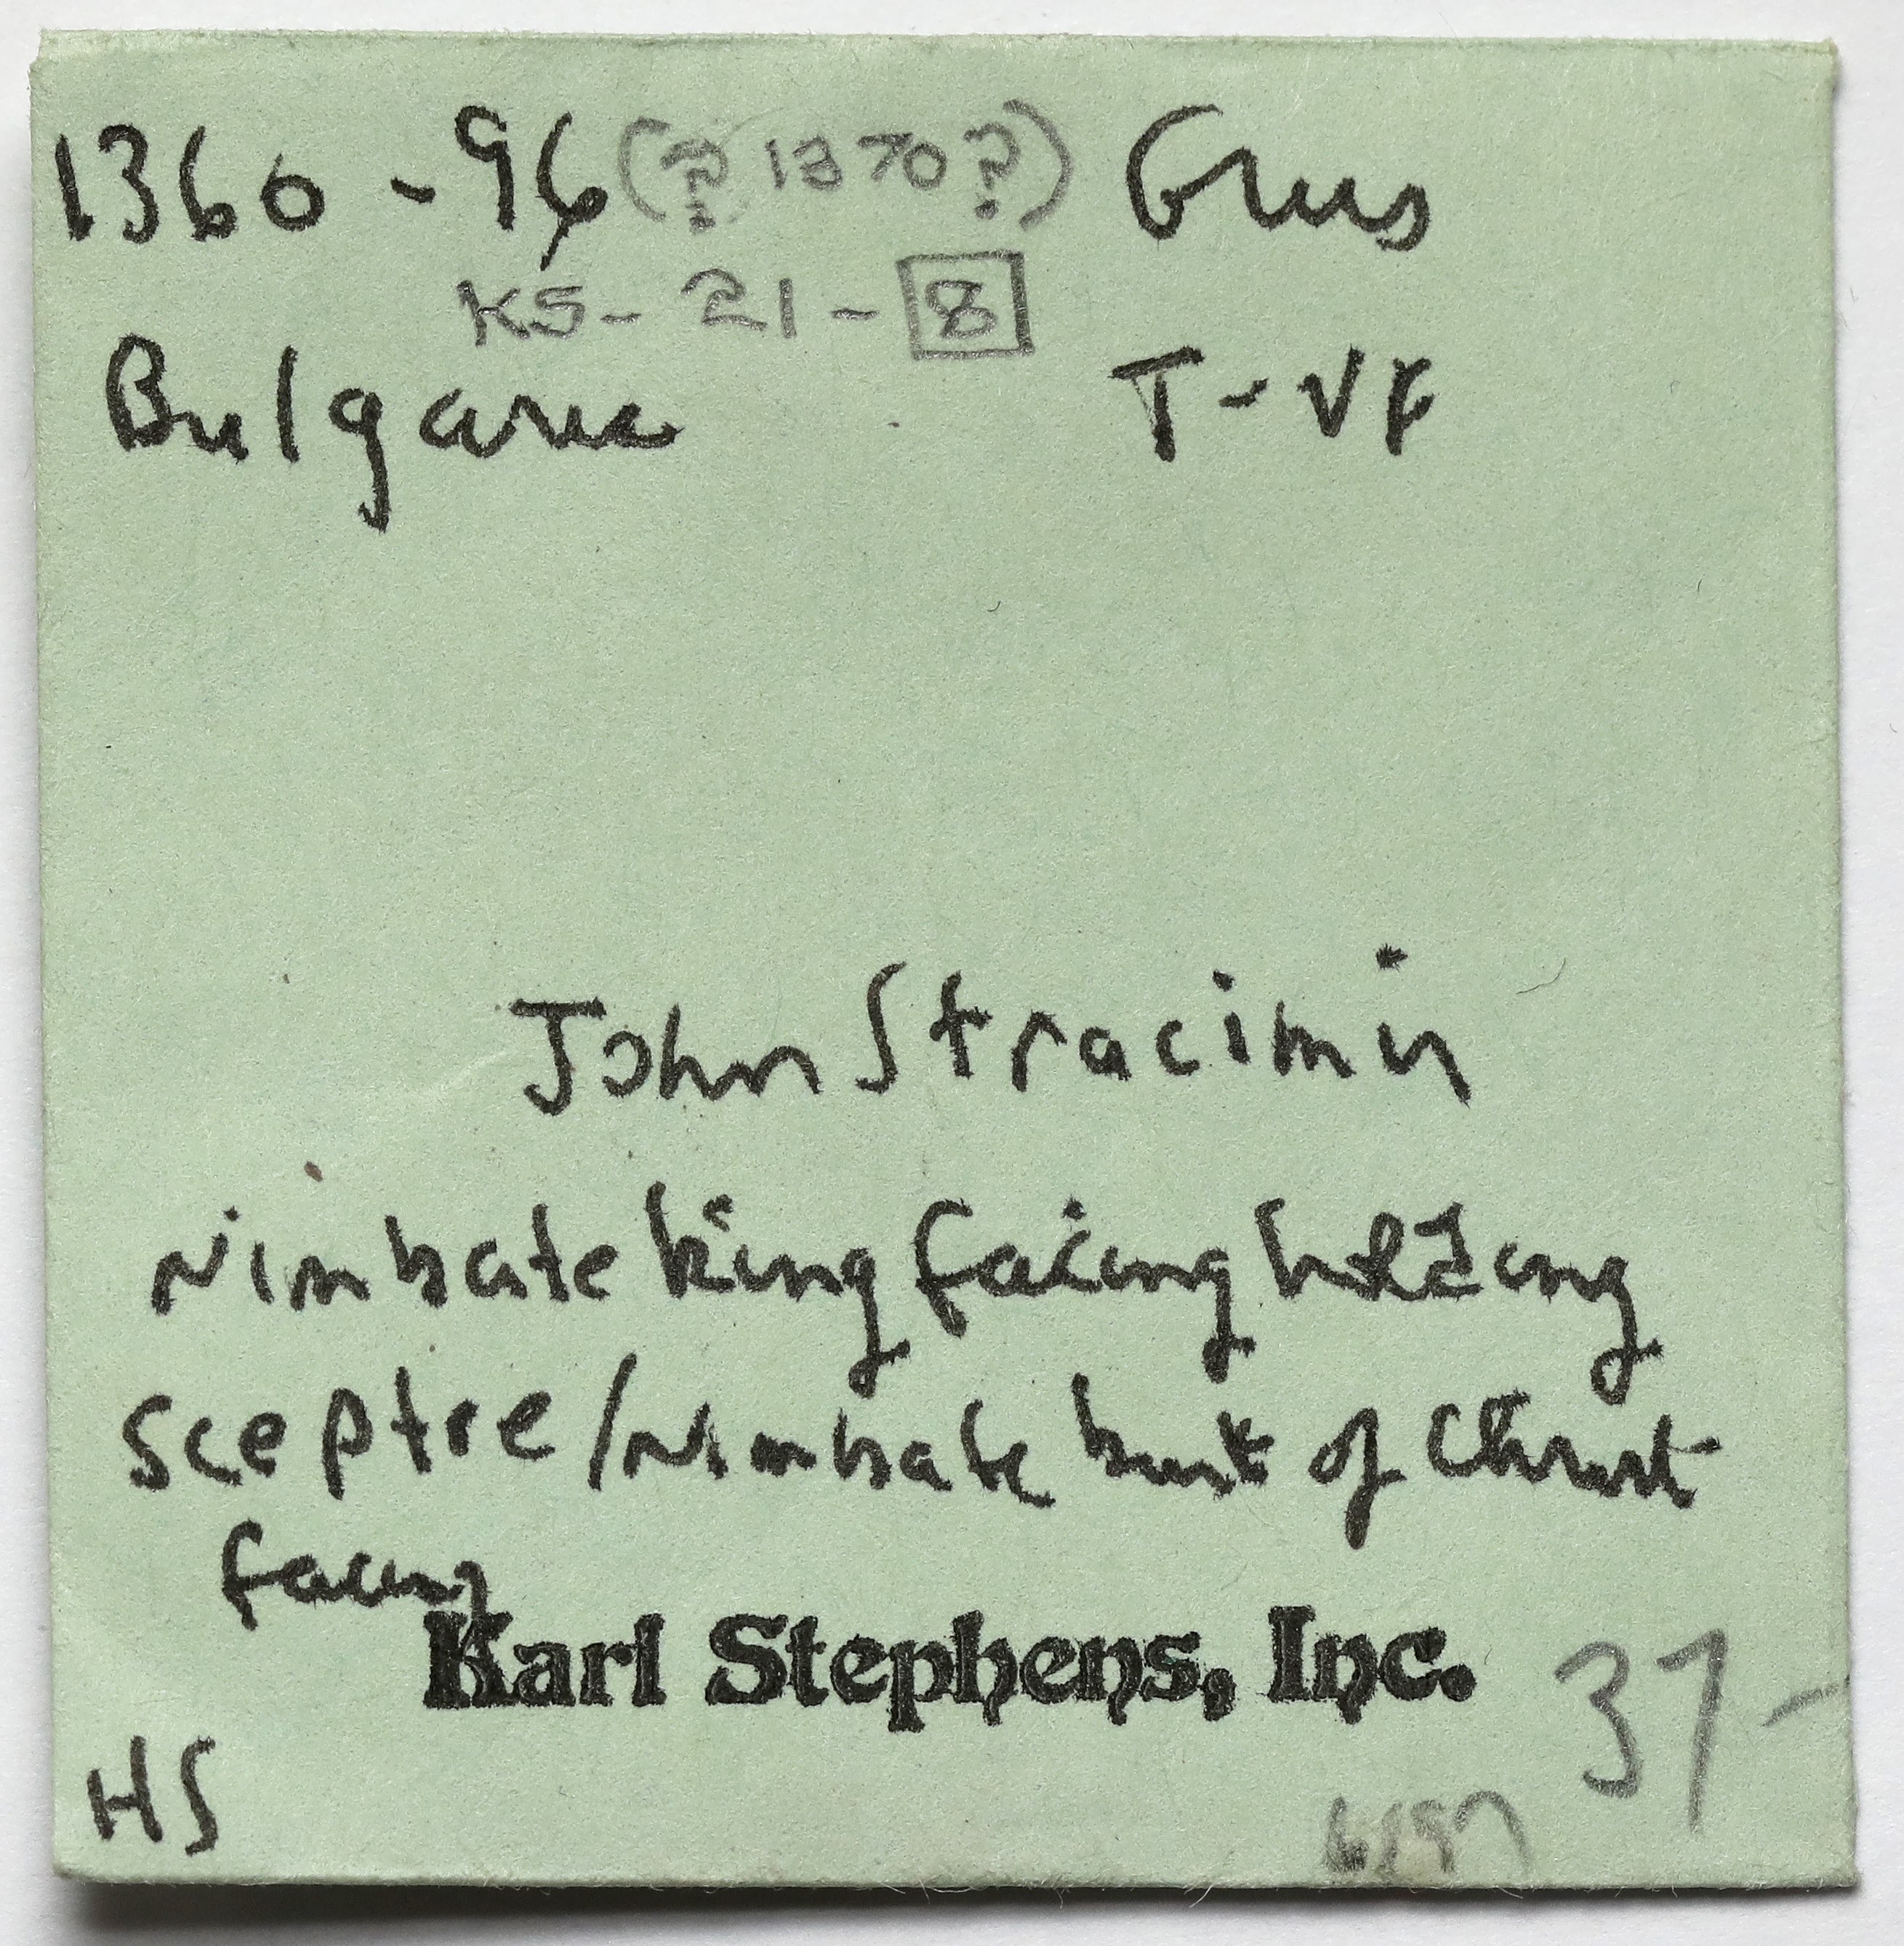 1360-96 (? 1370 ?) Grus
KS-21-8
Bulgaria T-VF
John Stracimir
Nimbate king facing holding
sceptre/Nimbate bust of Christ
facing
Karl Stephens, Inc.
37-
HS